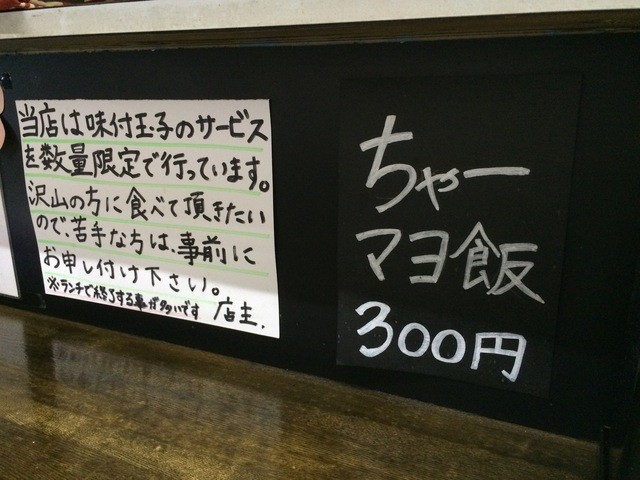 当店は味付玉子のサービス
を数量限定で行っています。
沢山の方に食べて頂きたい
ので、苦手な方は、事前に
お申し付け下さい。
※ランチで終了する事が多いです 店主.
ちゃー
マヨ飯
300円